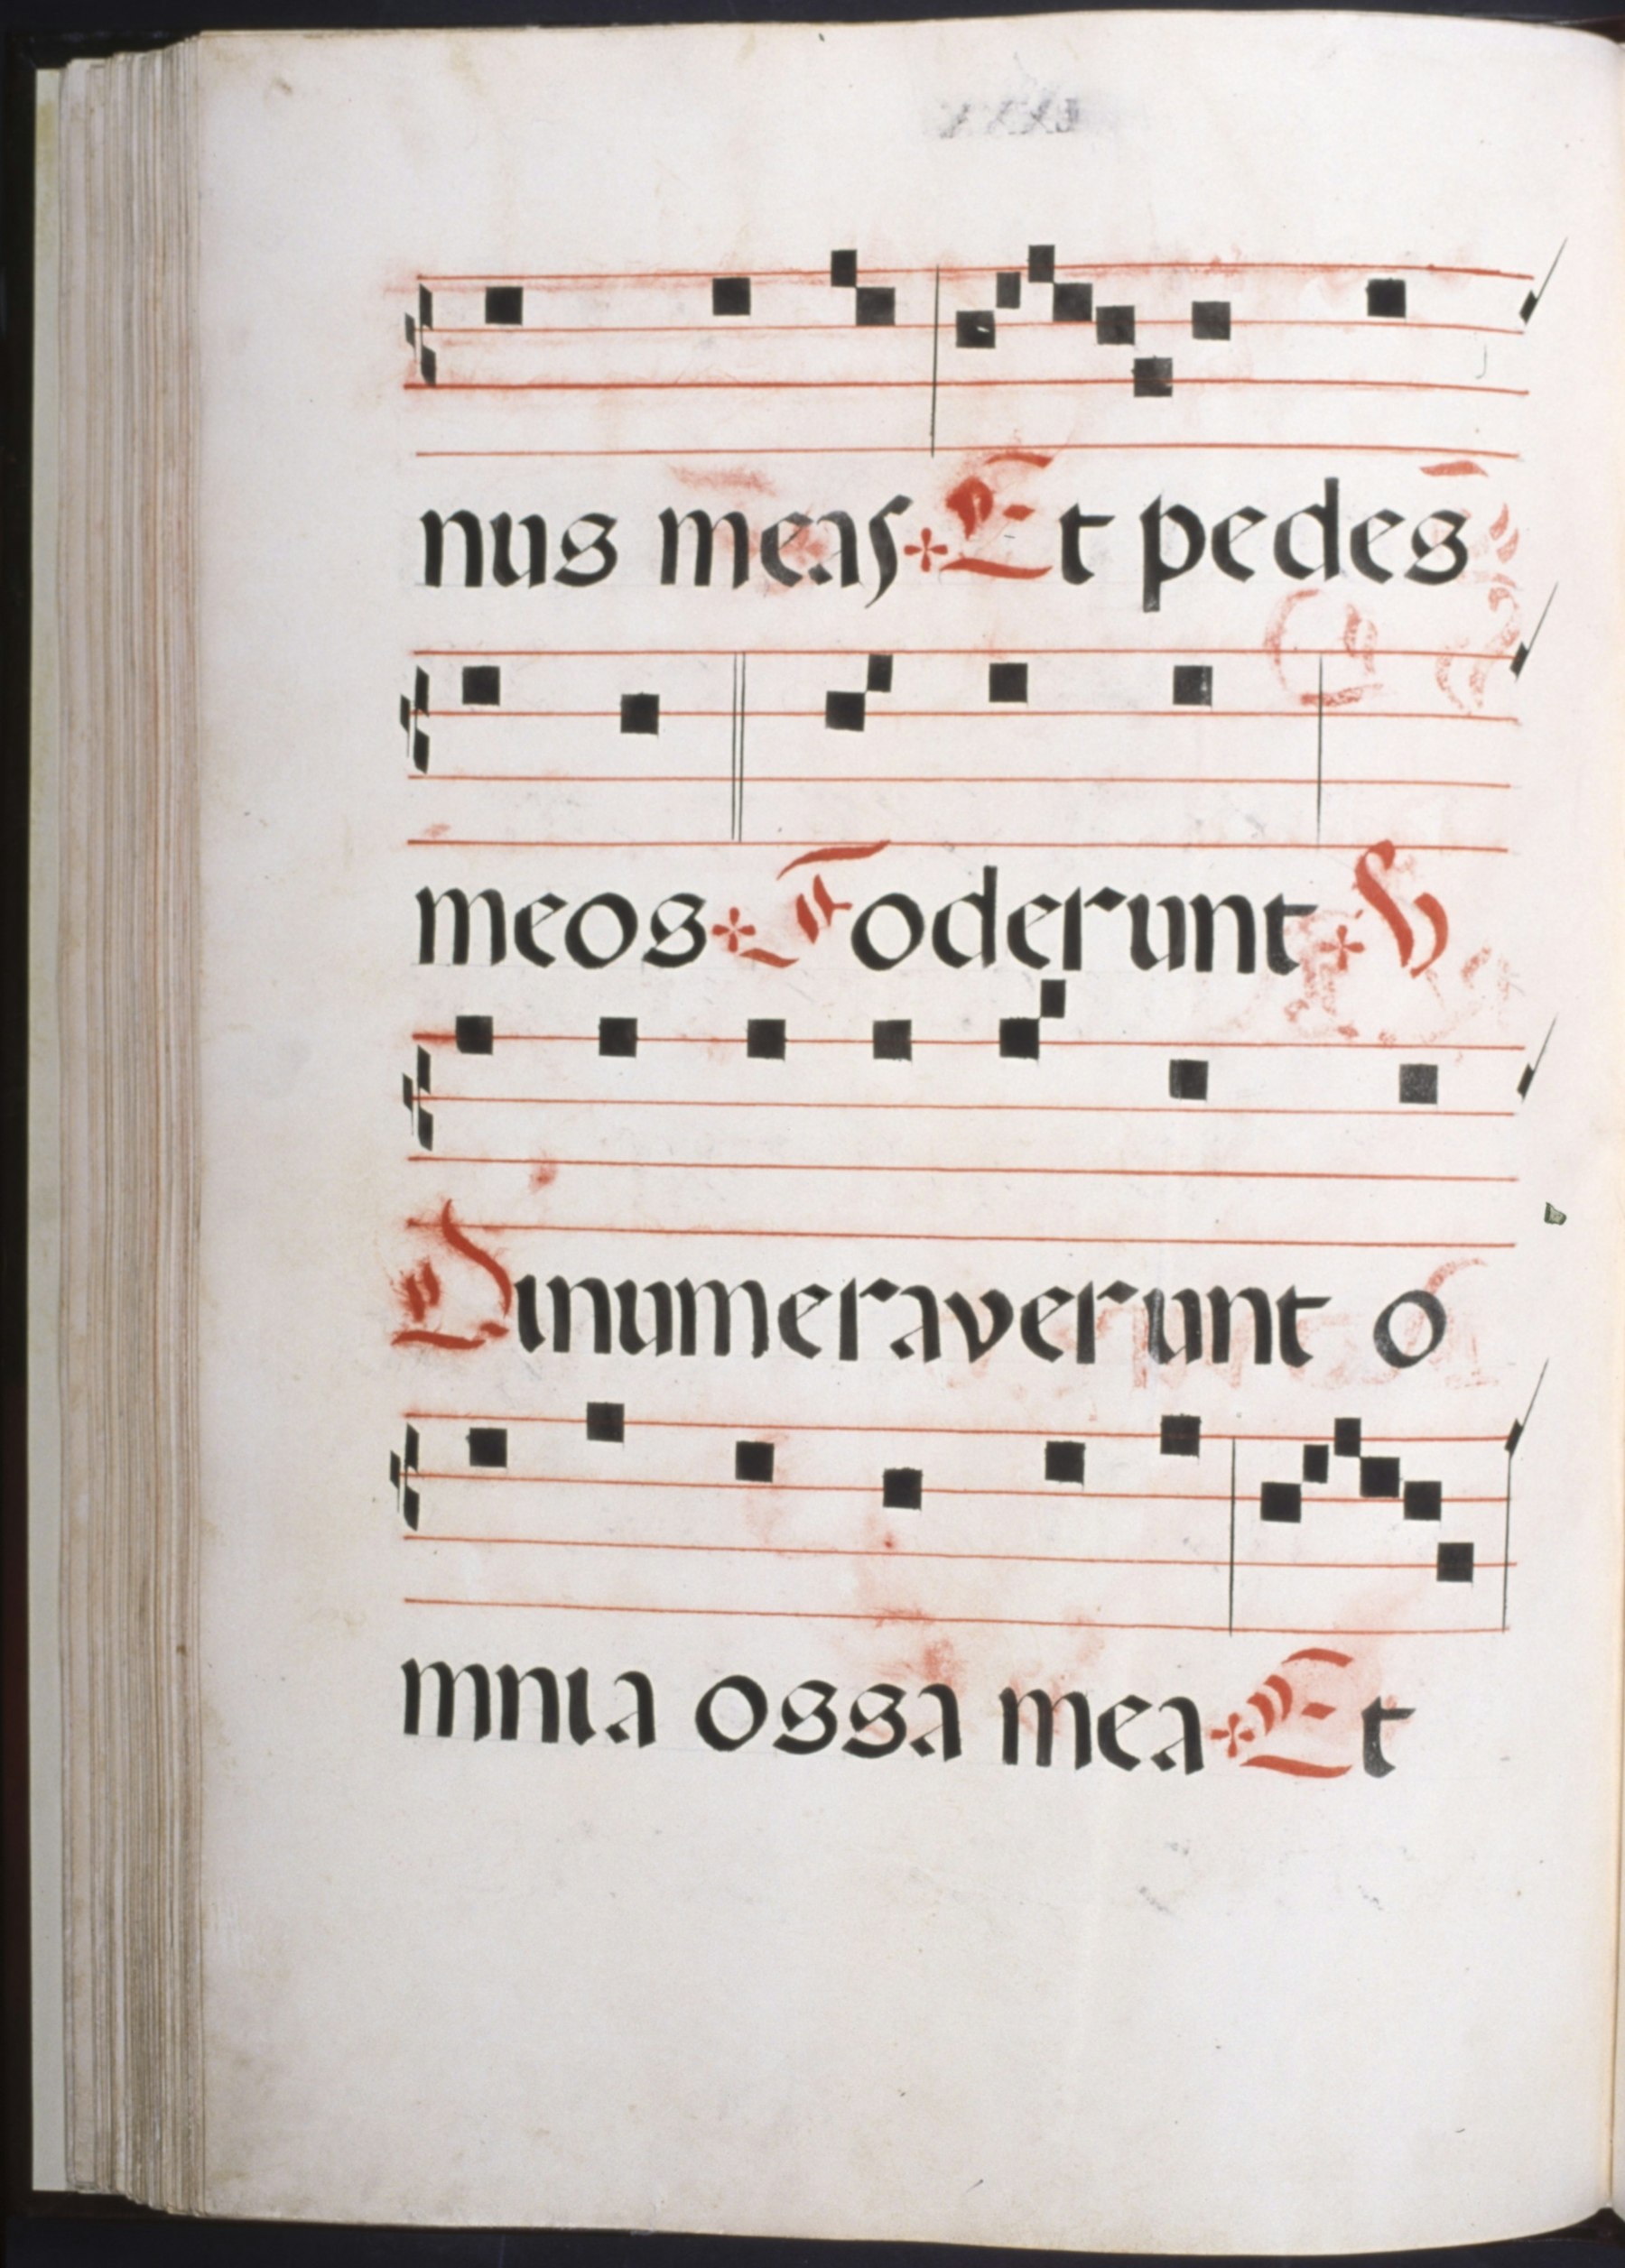 nus meas Et pedes
meos Foderunt V
Dinumeraverunt o
mnia ossa mea Et